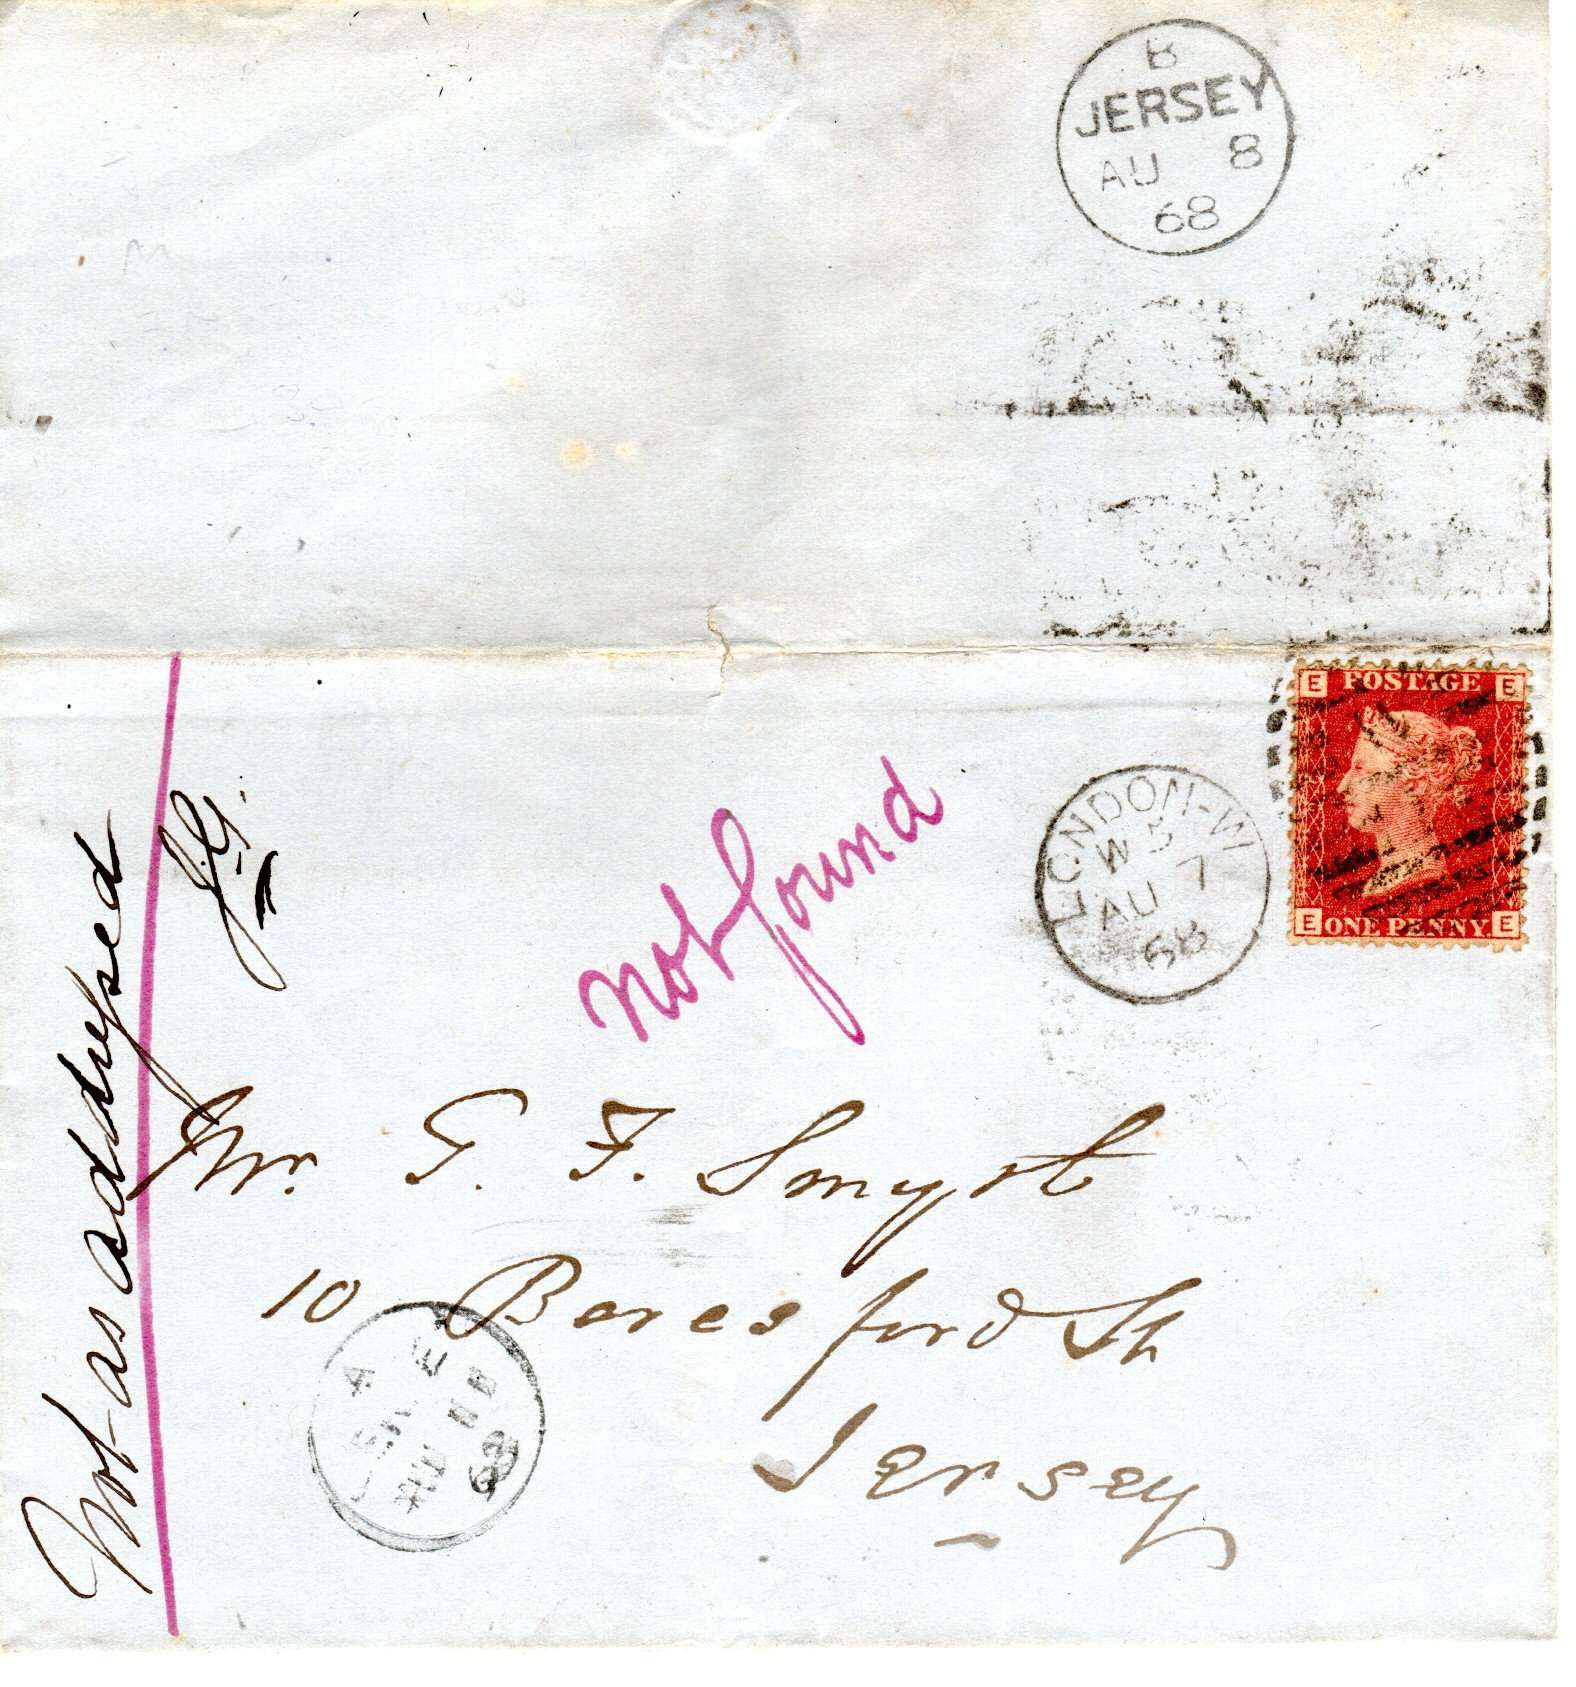 B
JERSEY
AU 8
68
E POSTAGE E
E ONE PENNY E
LONDON-W
W 5
AU 7
68
not found
Not as addressed
J.G.
Mr. G. F. Smyth
10 Beresford St
Jersey
AU
68